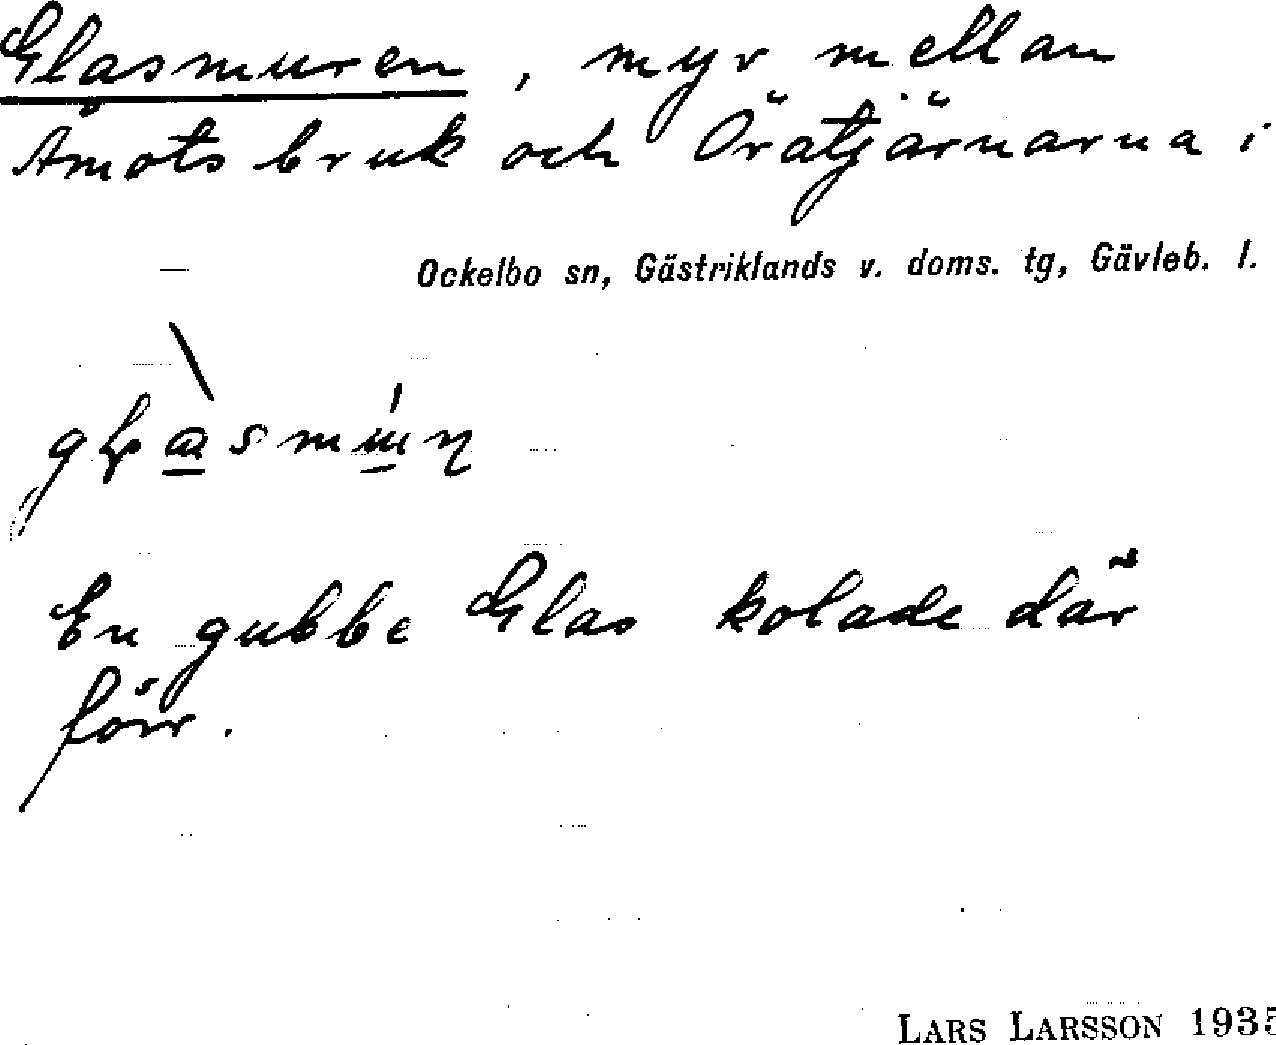 Glasmuren, myr mellan
Åmots bruk och Öratjärnarna i
Ockelbo sn, Gästriklands v. doms. tg, Gävleb. l.
En gubbe Glas kolade där
förr.
LARS LARSSON 1935